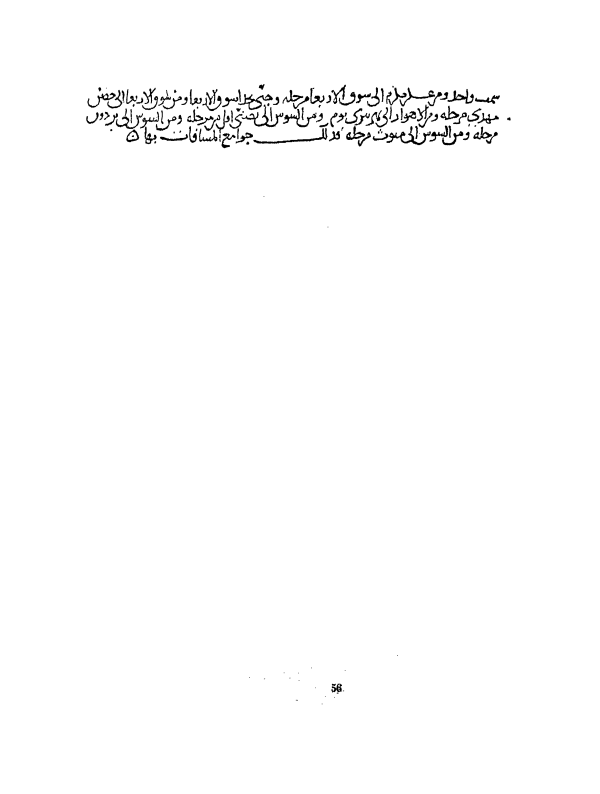 سمت واحد ومن عسكر مكرم الى سوق الاربعا مرحله وجبى حدا سوق الاربعا ومن سوق الاربعا الى حصن
مهدى مرحله ومن الاهواز الى نهر تيرى يوم ومن السوس الى بصنى اقل من مرحله ومن السوس الى بردون
مرحله ومن السوس الى متوث مرحله فذلك جوامع المسافات بها
56